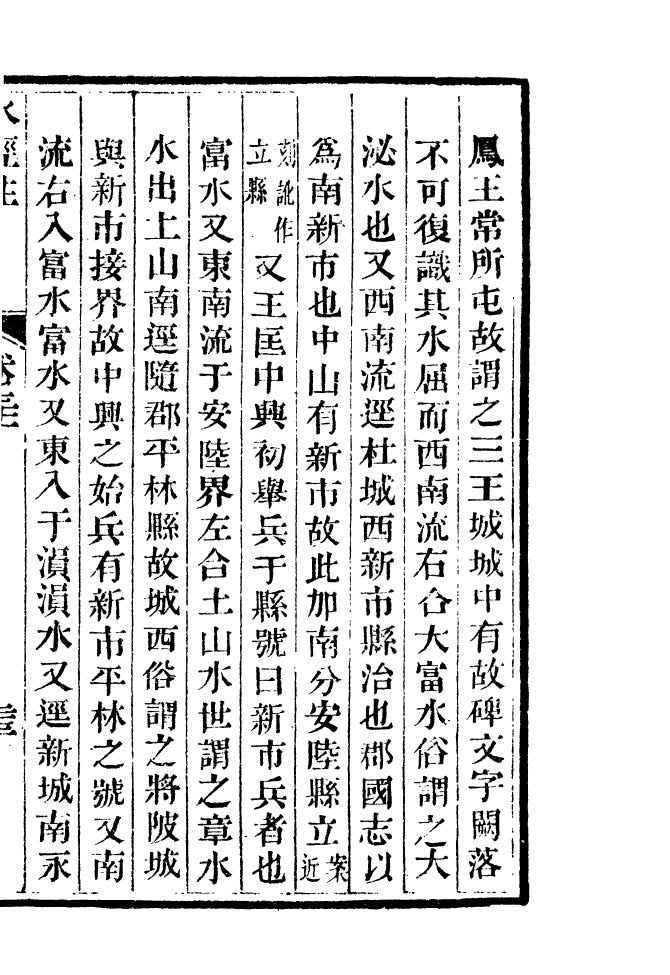 鳳王常所屯故謂之三王城城中有故碑文字闕落
不可復識其水屈而西南流右合大富水俗謂之大
泌水也又西南流逕杜城西新市縣治也郡國志以
爲南新市也中山有新市故此加南分安陸縣立案近
刻訛作立縣又王匡中興初舉兵于縣號曰新市兵者也
富水又東南流于安陸界左合土山水世謂之章水
水出上山南逕隨郡平林縣故城西俗謂之將陂城
與新市接界故中興之始兵有新市平林之號又南
流右入富水富水又東入于溳溳水又逕新城南永
水經注